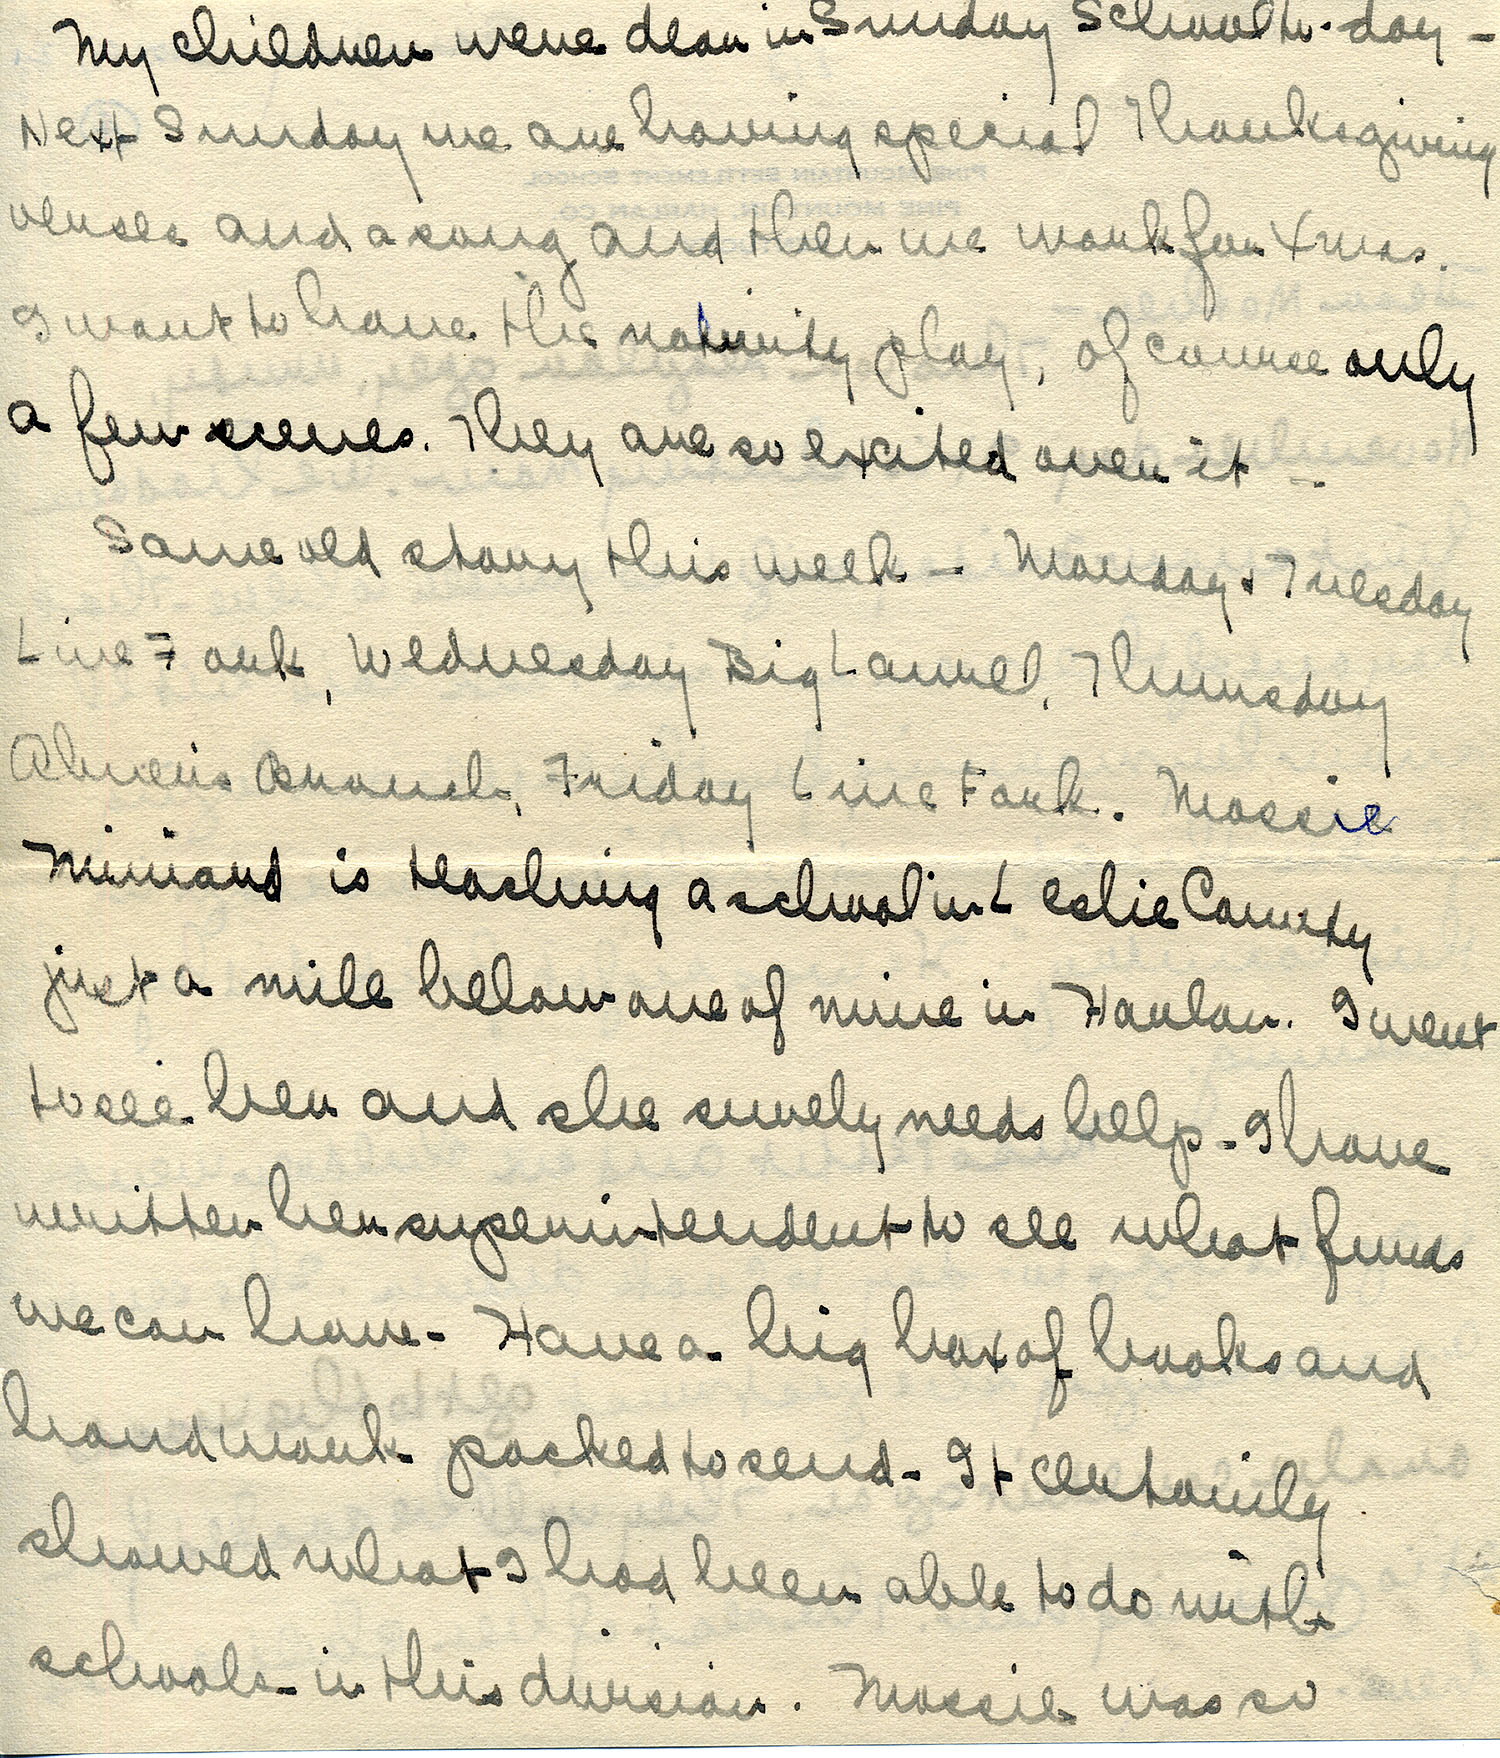 My children were dear in Sunday School to-day -
Next Sunday we are having special Thanksgiving
verses and a song and then we work for Xmas.
I want to have the nativity play, of course only
a few scenes. They are so exited over it -.
Same old story this week - Monday & Tuesday
Line Fork, Wednesday Big Laurel, Thursday
Abner's Branch, Friday Line Fork. Mossie
Miniard is teaching a school in Leslie County
just a mile below one of mine in Harlan. I went
to see her and she surely needs help - I have
written her superintendent to see what funds
we can have - Have a big box of books and
handwork packed to send - It certainly
showed what I had been able to do with
schools in this division. Mossie was so
PINE MOUNTAIN SETTLEMENT SCHOOL
PINE MOUNTAIN, HARLAN CO.